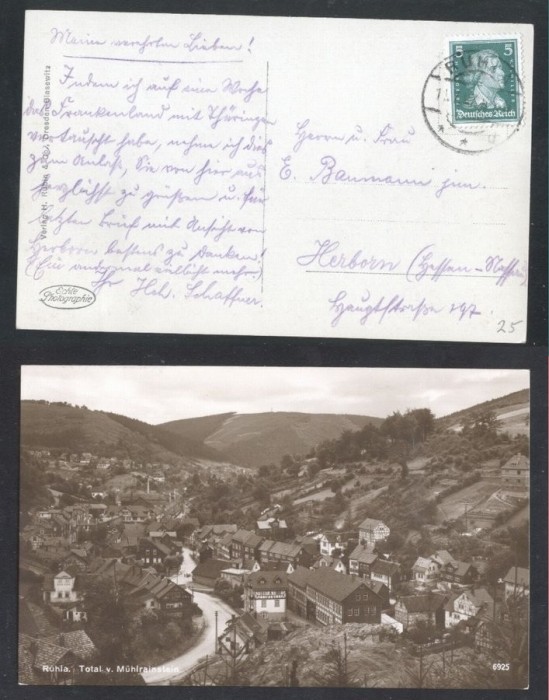 Meine verehrten Lieben!
Indem ich auf eine Woche
das Frankenland mit Thüringen
vertauscht habe, nehme ich dies
zum Anlaß, Sie von hier aus
herzlichst zu grüßen u. für
letzten Brief mit Ansicht von
Herborn bestens zu danken!
(Ein andermal vielleicht mehr)
Ihr Hch. Schaffner.
Echte
Photographie
5 5
Deutsches Reich
RUHLA
Herrn u. Frau
E. Baumann jun.
Herborn (Hessen-Nassau)
Hauptstraße 197.
25
Ruhla. Total v. Mühlrainstein
6925